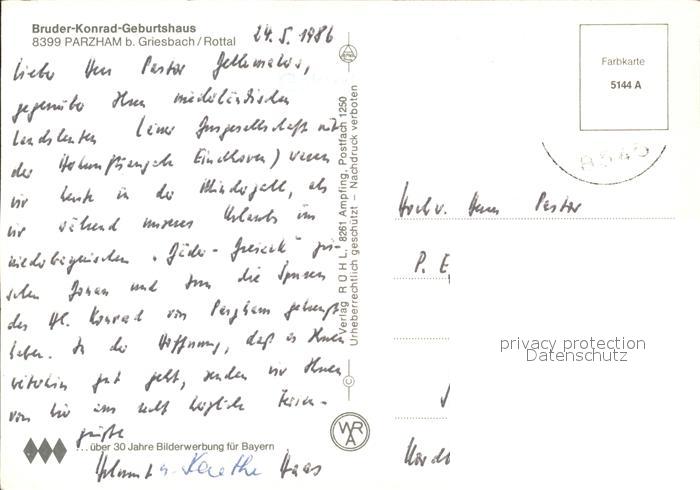 Bruder-Konrad-Geburtshaus
8399 PARZHAM b. Griesbach/Rottal
24.5.1986
Lieber Herr Pastor
gegenüber Ihren niederländischen
Landsleuten (einer Busgesellschaft mit
der Herkunftsangabe Eindhoven) waren
wir heute in der Minderzahl, als
wir während unseres Urlaubs im
niederbayrischen "Bäder-Dreieck"
schen Donau und Inn die Spuren
des Hl. Konrad von Parzham
haben. In der Hoffnung, daß es Ihnen
weiterhin gut geht, senden wir Ihnen
von hier aus recht herzliche Ferien-
grüße
Helmut u. Käthe Haas
...über 30 Jahre Bilderwerbung für Bayern
Verlag RÜHL, 8261 Ampfing, Postfach 1250
Urheberrechtlich geschützt – Nachdruck verboten
WRA
Farbkarte
5144 A
Hochw. Herrn Pastor
P. E
privacy protection
Datenschutz